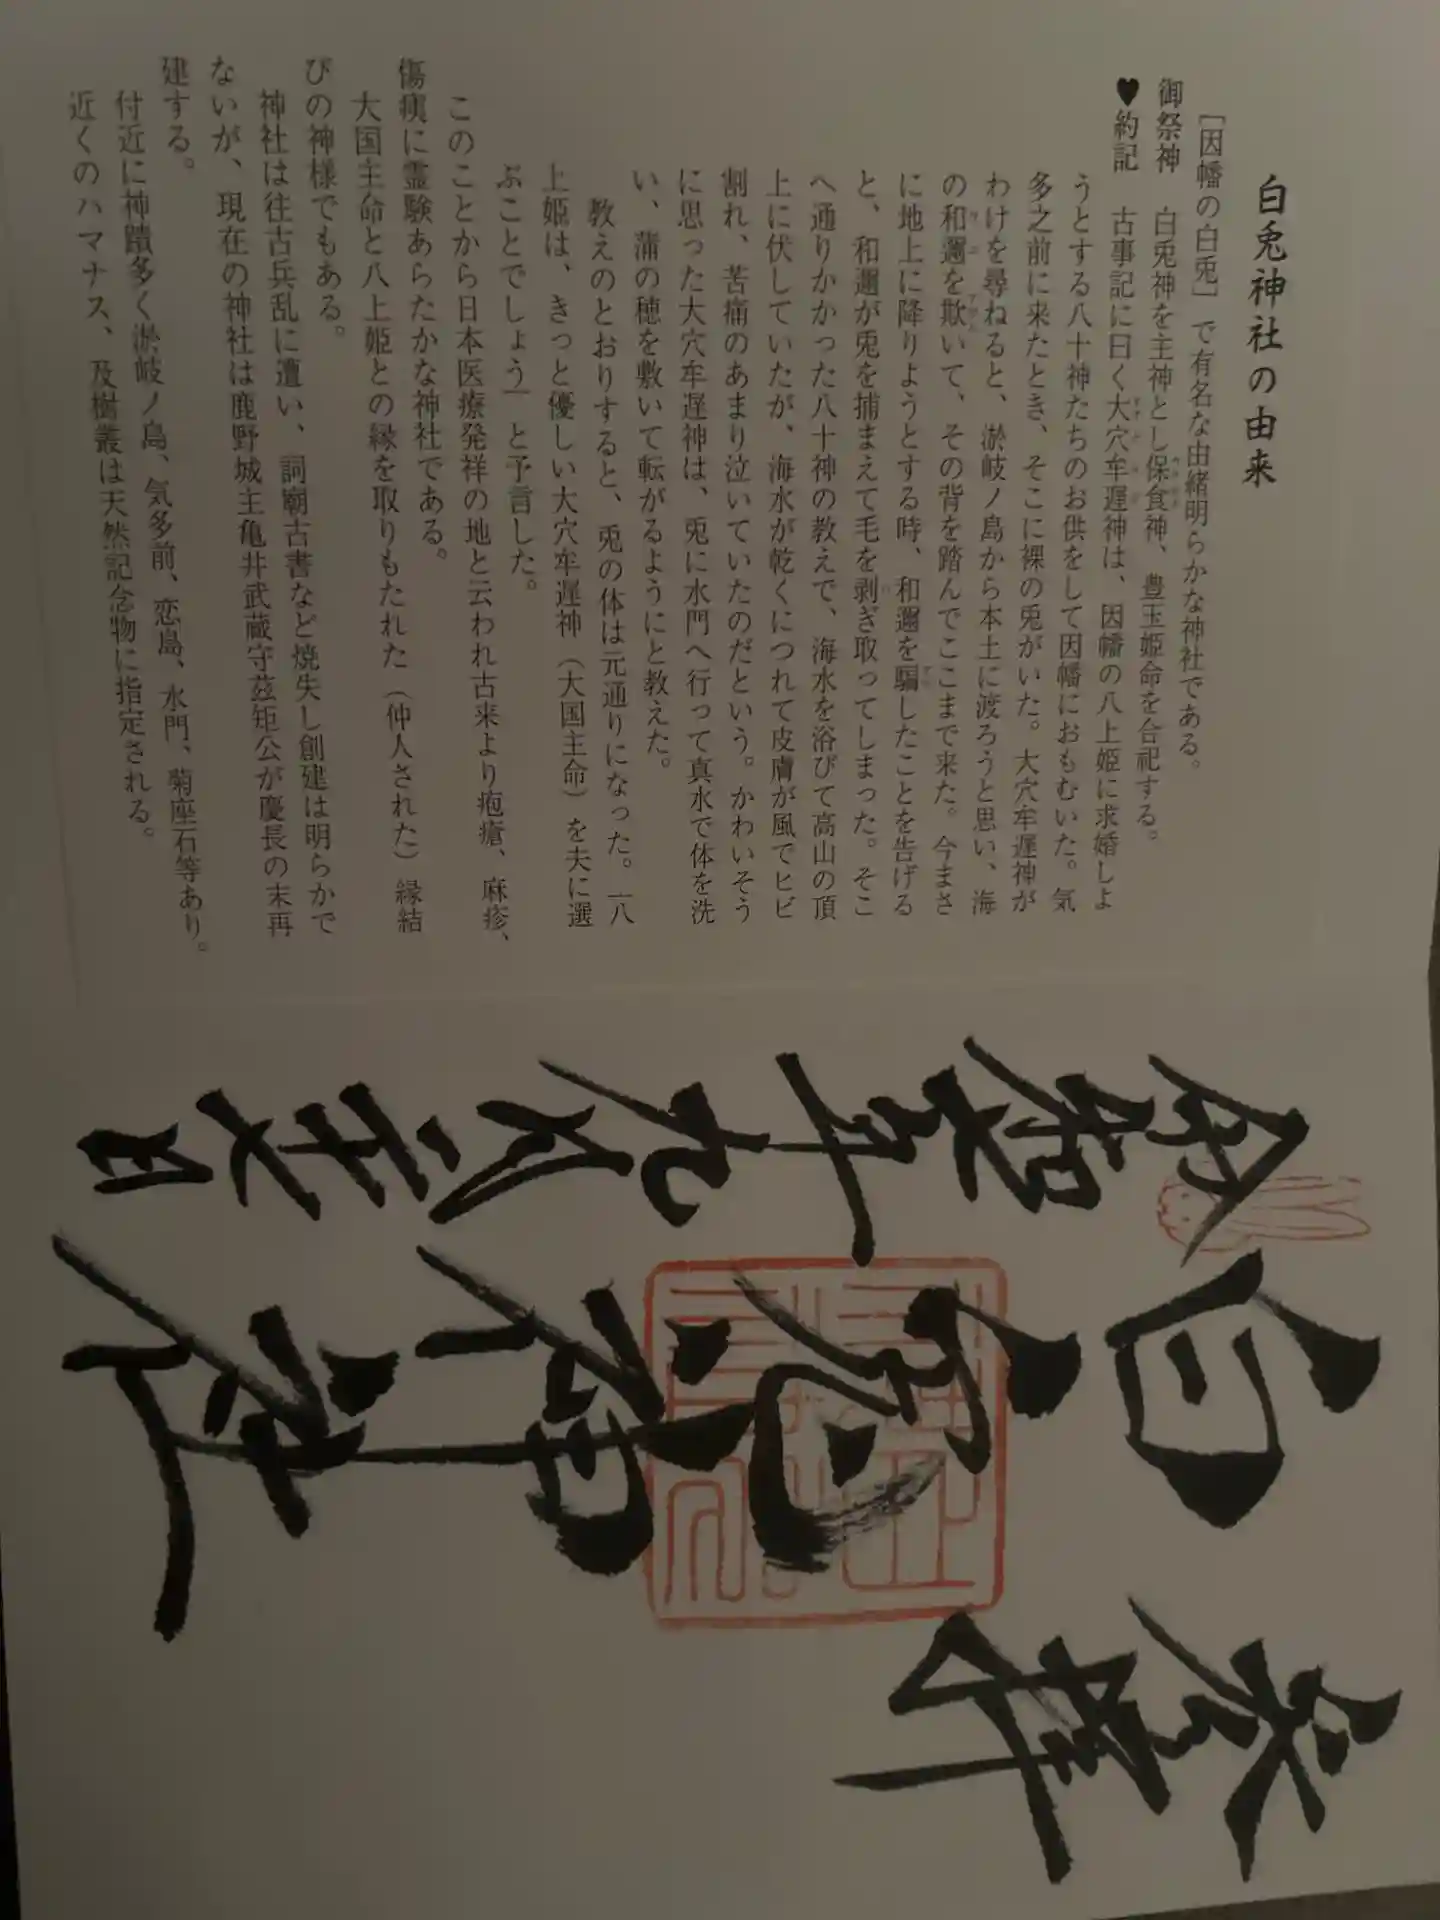 白兎神社の由来
［因幡の白兎］で有名な由緒明らかな神社である。
御祭神　白兎神を主神とし保食神、豊玉姫命を合祀する。
♥約記　古事記に曰く大穴牟遅神は、因幡の八上姫に求婚しよ
うとする八十神たちのお供をして因幡におもむいた。気
多之前に来たとき、そこに裸の兎がいた。大穴牟遅神が
わけを尋ねると、淤岐ノ島から本土に渡ろうと思い、海
の和邇を欺いて、その背を踏んでここまで来た。今まさ
に地上に降りようとする時、和邇を騙したことを告げる
と、和邇が兎を捕まえて毛を剥ぎ取ってしまった。そこ
へ通りかかった八十神の教えで、海水を浴びて高山の頂
上に伏していたが、海水が乾くにつれて皮膚が風でヒビ
割れ、苦痛のあまり泣いていたのだという。かわいそう
に思った大穴牟遅神は、兎に水門へ行って真水で体を洗
い、蒲の穂を敷いて転がるようにと教えた。
教えのとおりすると、兎の体は元通りになった。「八
上姫は、きっと優しい大穴牟遅神（大国主命）を夫に選
ぶことでしょう」と予言した。
このことから日本医療発祥の地と云われ古来より疱瘡、麻疹、
傷痍に霊験あらたかな神社である。
大国主命と八上姫との縁を取りもたれた（仲人された）縁結
びの神様でもある。
神社は往古兵乱に遭い、詞廟古書など焼失し創建は明らかで
ないが、現在の神社は鹿野城主亀井武蔵守茲矩公が慶長の末再
建する。
付近に神蹟多く淤岐ノ島、気多前、恋島、水門、菊座石等あり。
近くのハマナス、及樹叢は天然記念物に指定される。
奉拝
白兎神社
令和
年九月二十七日